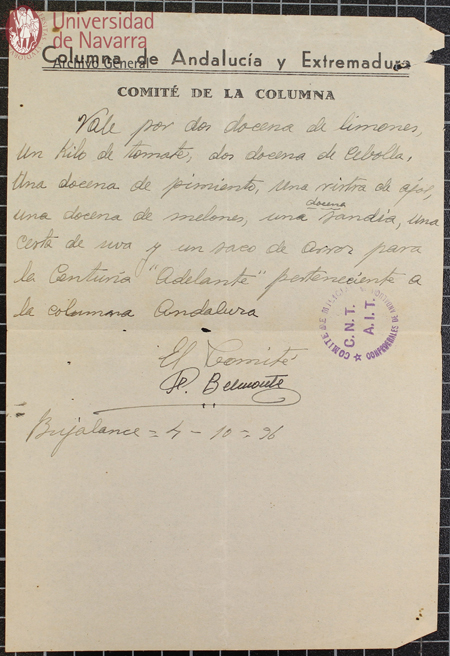 Universidad
de Navarra
Archivo General
Columna de Andalucía y Extremadura
COMITÉ DE LA COLUMNA
Vale por dos docena de limones,
un Kilo de tomate, dos docena de Cebolla,
Una docena de pimiento, una ristra de ajos,
una docena de melones, una docena sandia, una
cesta de uva y un saco de arroz para
la Centuria "Adelante" perteneciente a
la columna Andaluza
El Comité
P. Belmonte
Bujalance = 4 - 10 = 36
COMITE DE MILICIAS
CONFEDERALES
C. N. T.
A. I. T.